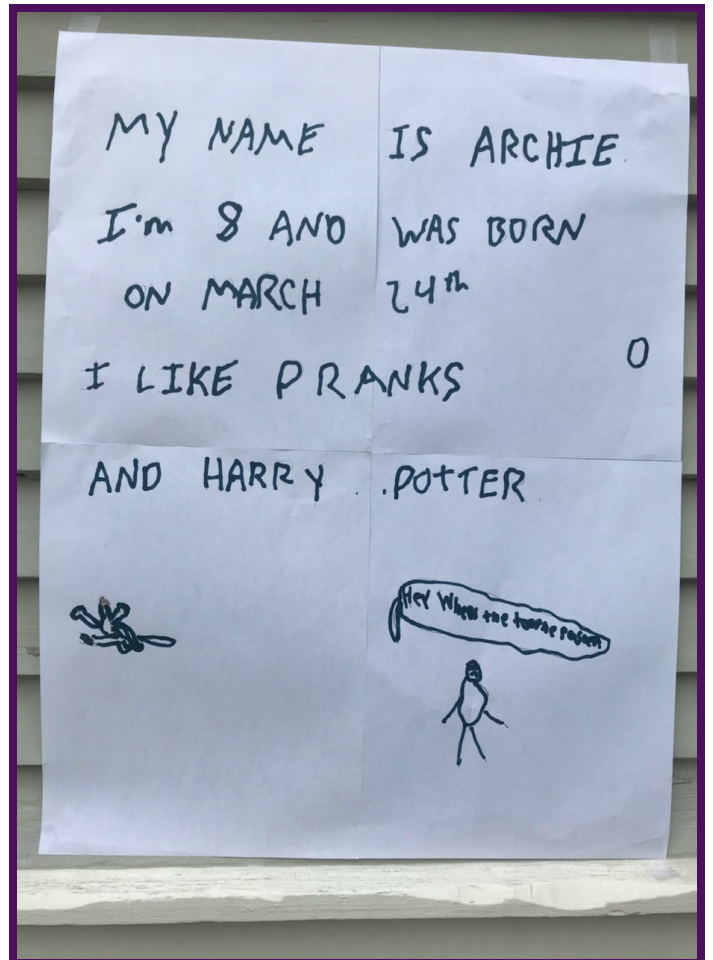 MY NAME IS ARCHIE.
I'm 8 AND WAS BORN
ON MARCH 24th
I LIKE PRANKS
AND HARRY POTTER
Hey Wheres the